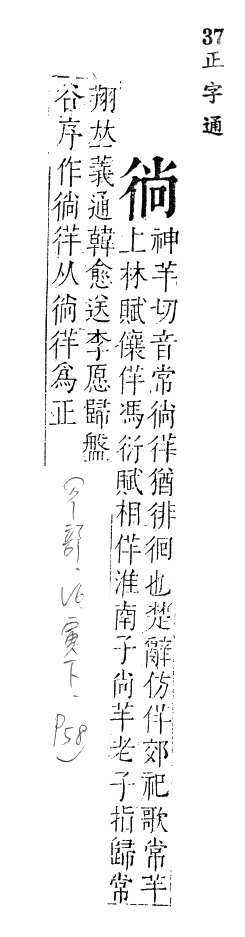 37
正字通
徜
神羊切音常徜徉猶徘徊也楚辭仿佯郊祀歌常羊
上林賦儴佯馮衍賦相佯淮南子尚羊老子指歸常
翔𠀤義通韓愈送李愿歸盤
谷序作徜徉从徜徉為正
(彳部.
寅下.
P58)